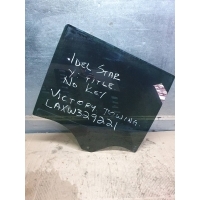 .IDEL STAR
Y. TITLE
NO KEY
VICTORY TOWING
LAXW329221